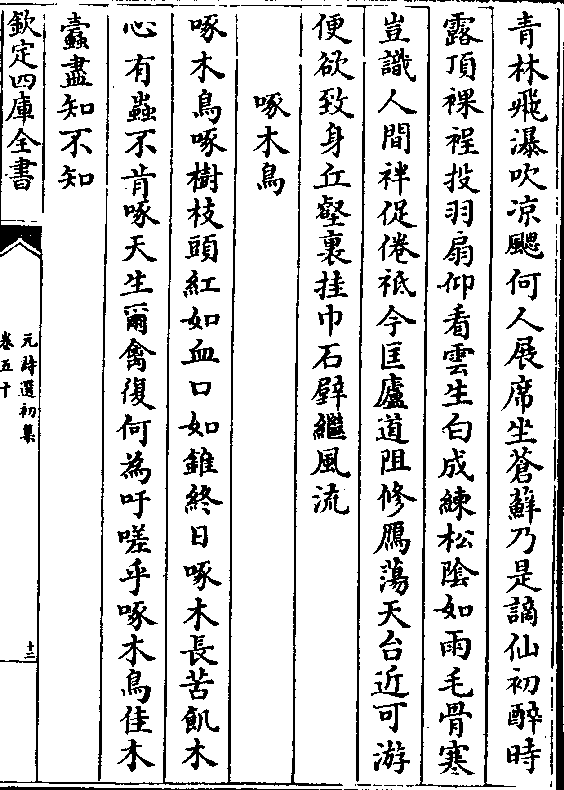 青林飛瀑吹凉颸何人展席坐蒼蘚乃是謫仙初醉時
露頂裸裎投羽扇仰看雲生白成練松陰如雨毛骨寒
豈識人間袢促倦祗今匡廬道阻修鴈蕩天台近可游
便欲致身丘壑裏挂巾石壁繼風流
啄木鳥
啄木鳥啄樹枝頭紅如血口如錐終日啄木長苦飢木
心有蟲不肯啄天生爾禽復何為吁嗟乎啄木鳥佳木
蠧盡知不知
欽定四庫全書
元詩選初集
卷五十
十三